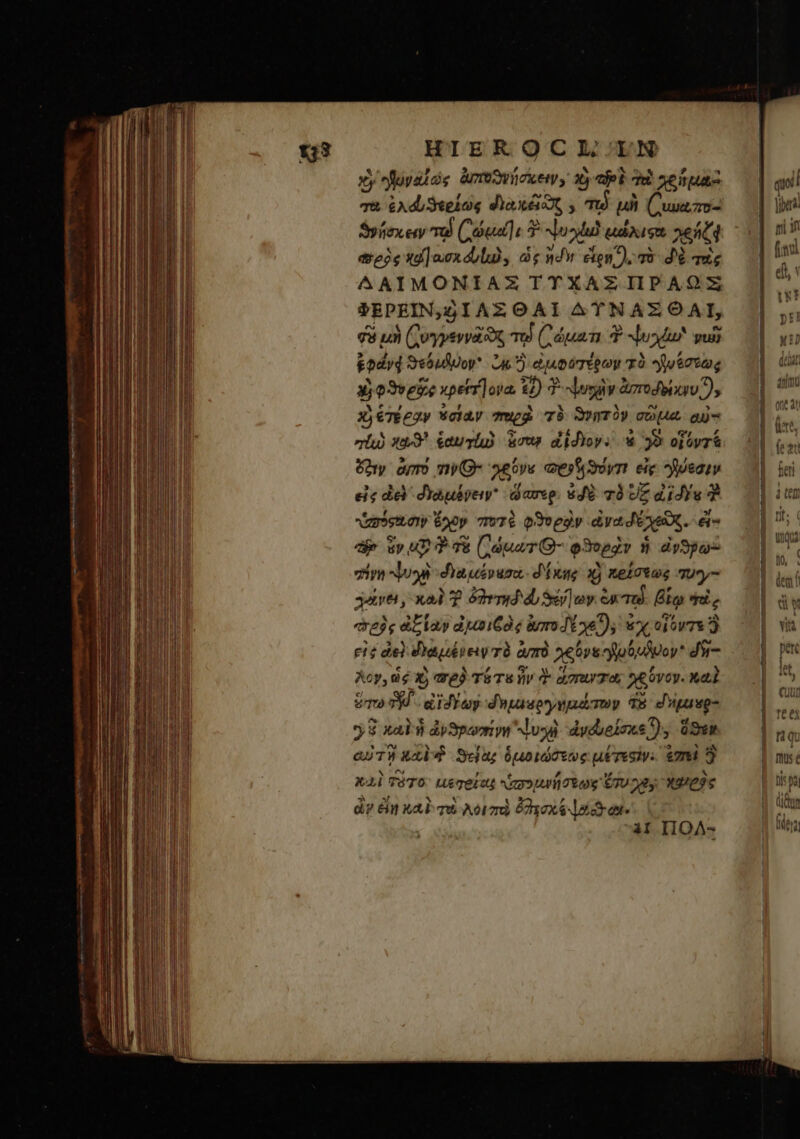 138
HIEROCL. IN
καὶ γενναίως ἀποθνήσκειν, καὶ περὶ τὰ χρήμα-
τα ἐλευθερίως διακεῖσθαι, τῷ μὴ συναπο-
θνήσκειν τῷ σώματι τὴν ψυχὴν μάλιστα χρῄζει
πρὸς κατασκευὴν, ὡς ἤδη εἴρηται. τὸ δὲ τὰς
ΔΑΙΜΟΝΙΑΣ ΤΥΧΑΣ ΠΡΑΩΣ
ΦΕΡΕΙΝ, καὶ ΙΑΣΘΑΙ ΔΥΝΑΣΘΑΙ,
τοῦ μὴ συγγεννᾶσθαι τῷ σώματι τὴν ψυχὴν
ἐφάνη δεόμενον· ἐκ δὲ ἀμφοτέρων τὸ γενέσεως
καὶ φθορᾶς κρείττονα εἶναι τὴν ψυχὴν ἀποδείκνυται,
καὶ ἑτέραν οὐσίαν παρὰ τὸ θνητὸν σῶμα αὐ-
τὴν καθ' ἑαυτὴν οὖσαν ἀΐδιον. οὐ γὰρ οἷόντε
ὅτιν ἀπό τινος χρόνου περιθόντι εἰς γένεσιν
εἰς ἀεὶ διαμένειν· ὥσπερ οὐδὲ τὸ ἐξ ἀϊδίου τὴν
ὑπόστασιν ἔχον ποτὲ φθορὰν ἀναδέχεσθαι. εἴ-
περ οὖν μετὰ τὴν τοῦ σώματος φθορὰν ἡ ἀνθρω-
πίνη ψυχὴ διαμένουσα δίκης καὶ κρίσεως τυγ-
χάνει, καὶ τῶν ἐπιτηδευθέντων ἐν τῷ βίῳ τὰς
πρὸς ἀξίαν ἀμοιβὰς ἀποδέχεται, οὐχ οἷόντε δὲ
εἰς ἀεὶ διαμένειν τὸ ἀπὸ χρόνου γενόμενον· δῆ-
λον, ὡς καὶ πρὸ τούτου ἦν τὸν ἅπαντα χρόνον. καὶ
οὕτω τῶν ἀϊδίων δημιουργημάτων τοῦ δημιουρ-
γοῦ καὶ ἡ ἀνθρωπίνη ψυχὴ ἀνευρίσκεται, ὅθεν
αὐτῇ καὶ τῆς θείας ὁμοιώσεως μέτεστιν. ἐπεὶ δὲ
καὶ τοῦτο μετρίας ὑπομνήσεως ἔτυχε, καιρὸς
ἂν εἴη καὶ τὰ λοιπὰ ἐπισκέψασθαι.
ΠΟΛ-